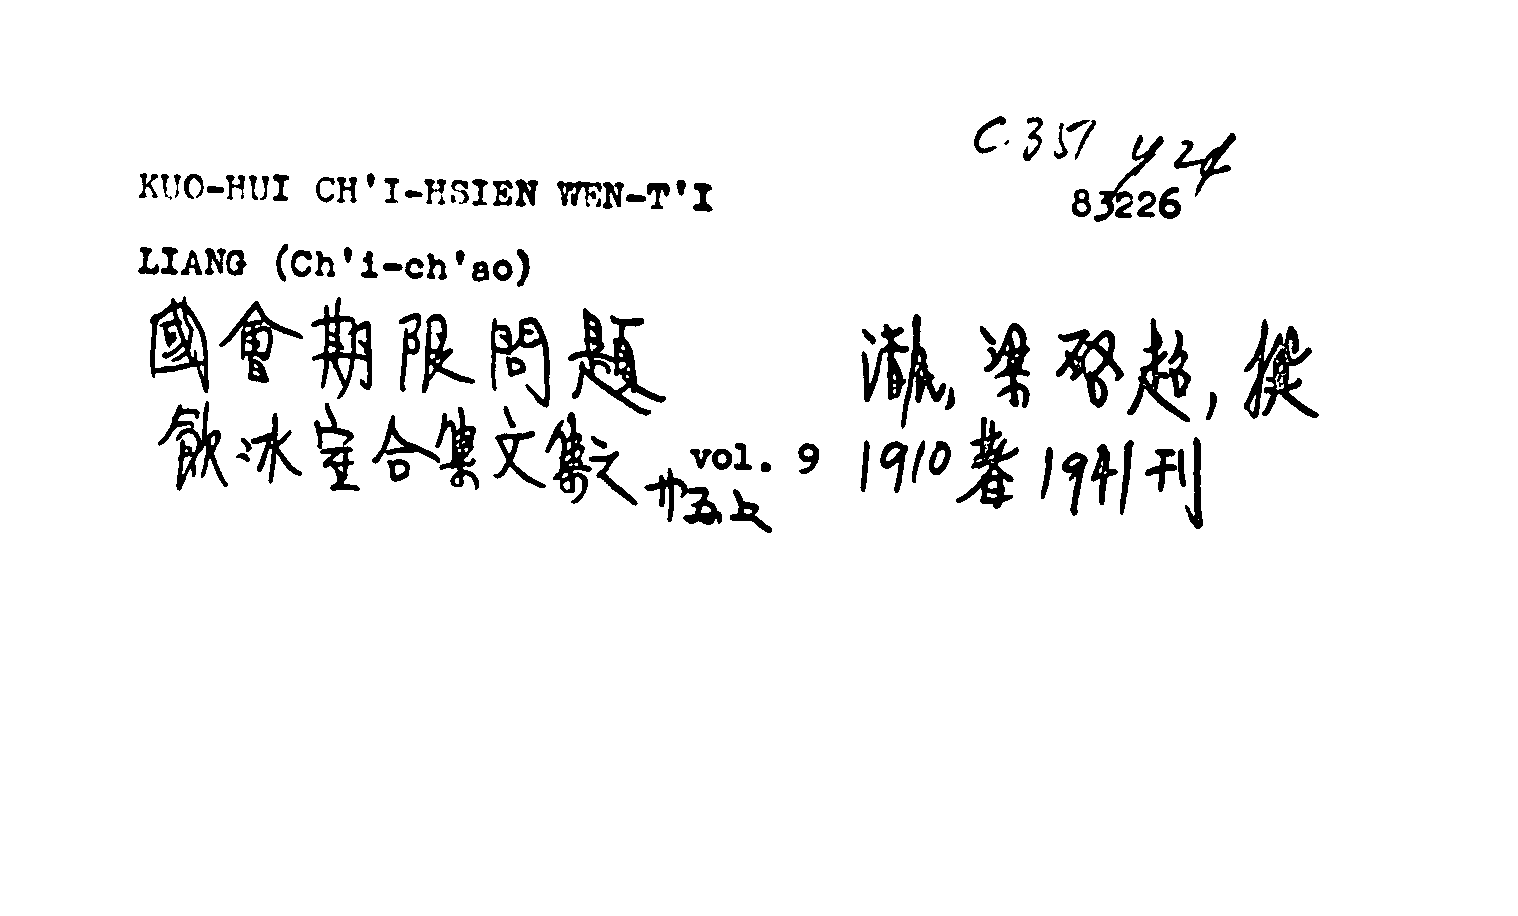 C.357 y24
KUO-HUI CH'I-HSIEN WEN-T'I
83226
LIANG (Ch'i-ch'ao)
國會期限問題 清, 梁啓超, 撰
飲冰室合集文集之廿五上 vol. 9 1910著 1941刊